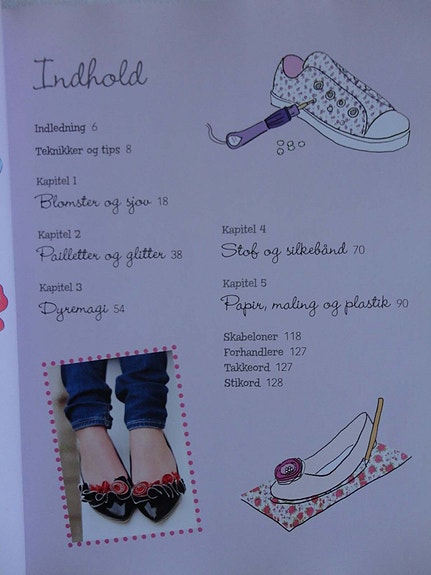 Indhold
Indledning 6
Teknikker og tips 8
Kapitel 1
Blomster og sjov 18
Kapitel 2
Pailletter og glitter 38
Kapitel 3
Dyremagi 54
Kapitel 4
Stof og silkebånd 70
Kapitel 5
Papir, maling og plastik 90
Skabeloner 118
Forhandlere 127
Takkeord 127
Stikord 128